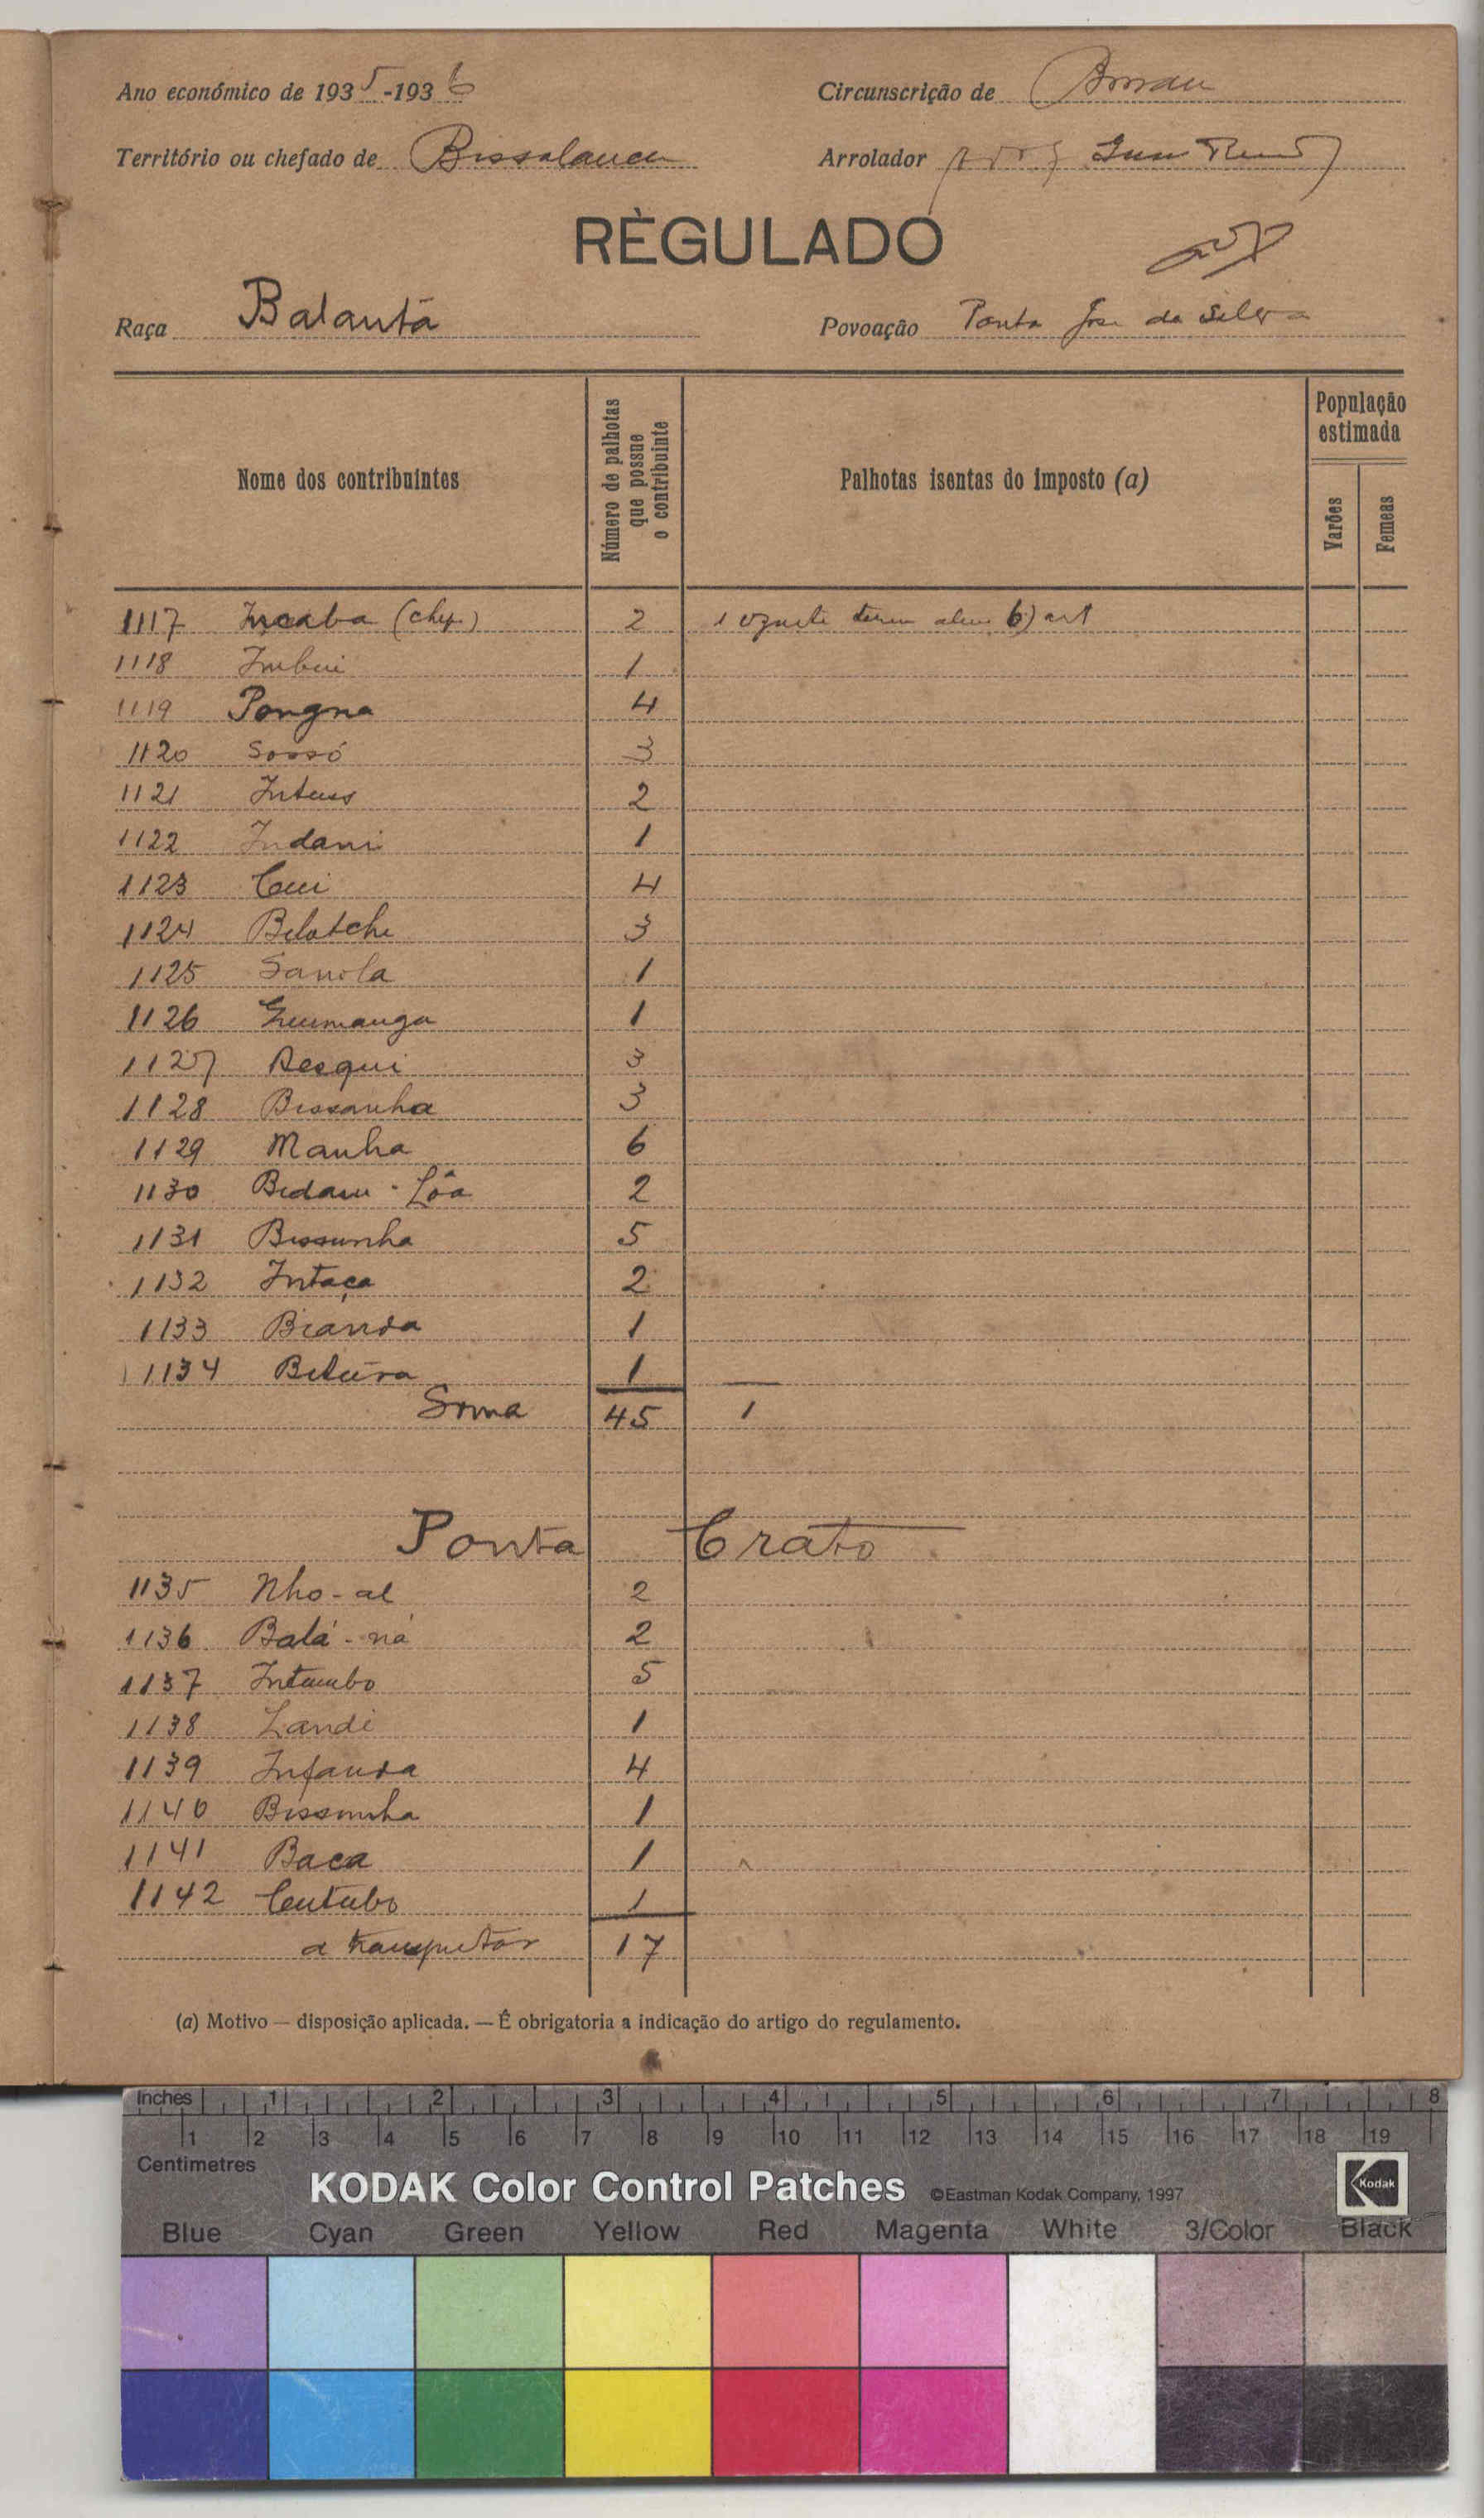 Ano económico de 1935-1936
Circunscrição de Bissau
Território ou chefado de Bissalanca
Arrolador
RÈGULADO
Raça Balanta
Povoação Ponta José da Silva
Nome dos contribuintes
Número de palhotas que possue o contribuinte
Palhotas isentas do imposto (a)
População estimada
Varões
Femeas
1117 Incaba (chefe) 2 1 b) art
1118 Imbui 1
1119 Pongna 4
1120 Sossó 3
1121 2
1122 Indani 1
1123 Cui 4
1124 Belatche 3
1125 Sanola 1
1126 1
1127 Resqui 3
1128 Bissanha 3
1129 Manha 6
1130 Bidam - Lôa 2
1131 Bissunha 5
1132 Intaça 2
1133 Bianda 1
1134 1
Soma 45 1
Ponta Crato
1135 Nho-al 2
1136 Balá-ná 2
1137 Intumbo 5
1138 Landi 1
1139 Infanda 4
1140 Bissunha 1
1141 Baca 1
1142 Cutubo 1
a transportar 17
(a) Motivo — disposição aplicada. — É obrigatoria a indicação do artigo do regulamento.
Inches 1 2 3 4 5 6 7 8
1 2 3 4 5 6 7 8 9 10 11 12 13 14 15 16 17 18 19
Centimetres
KODAK Color Control Patches ©Eastman Kodak Company, 1997 Kodak
Blue Cyan Green Yellow Red Magenta White 3/Color Black